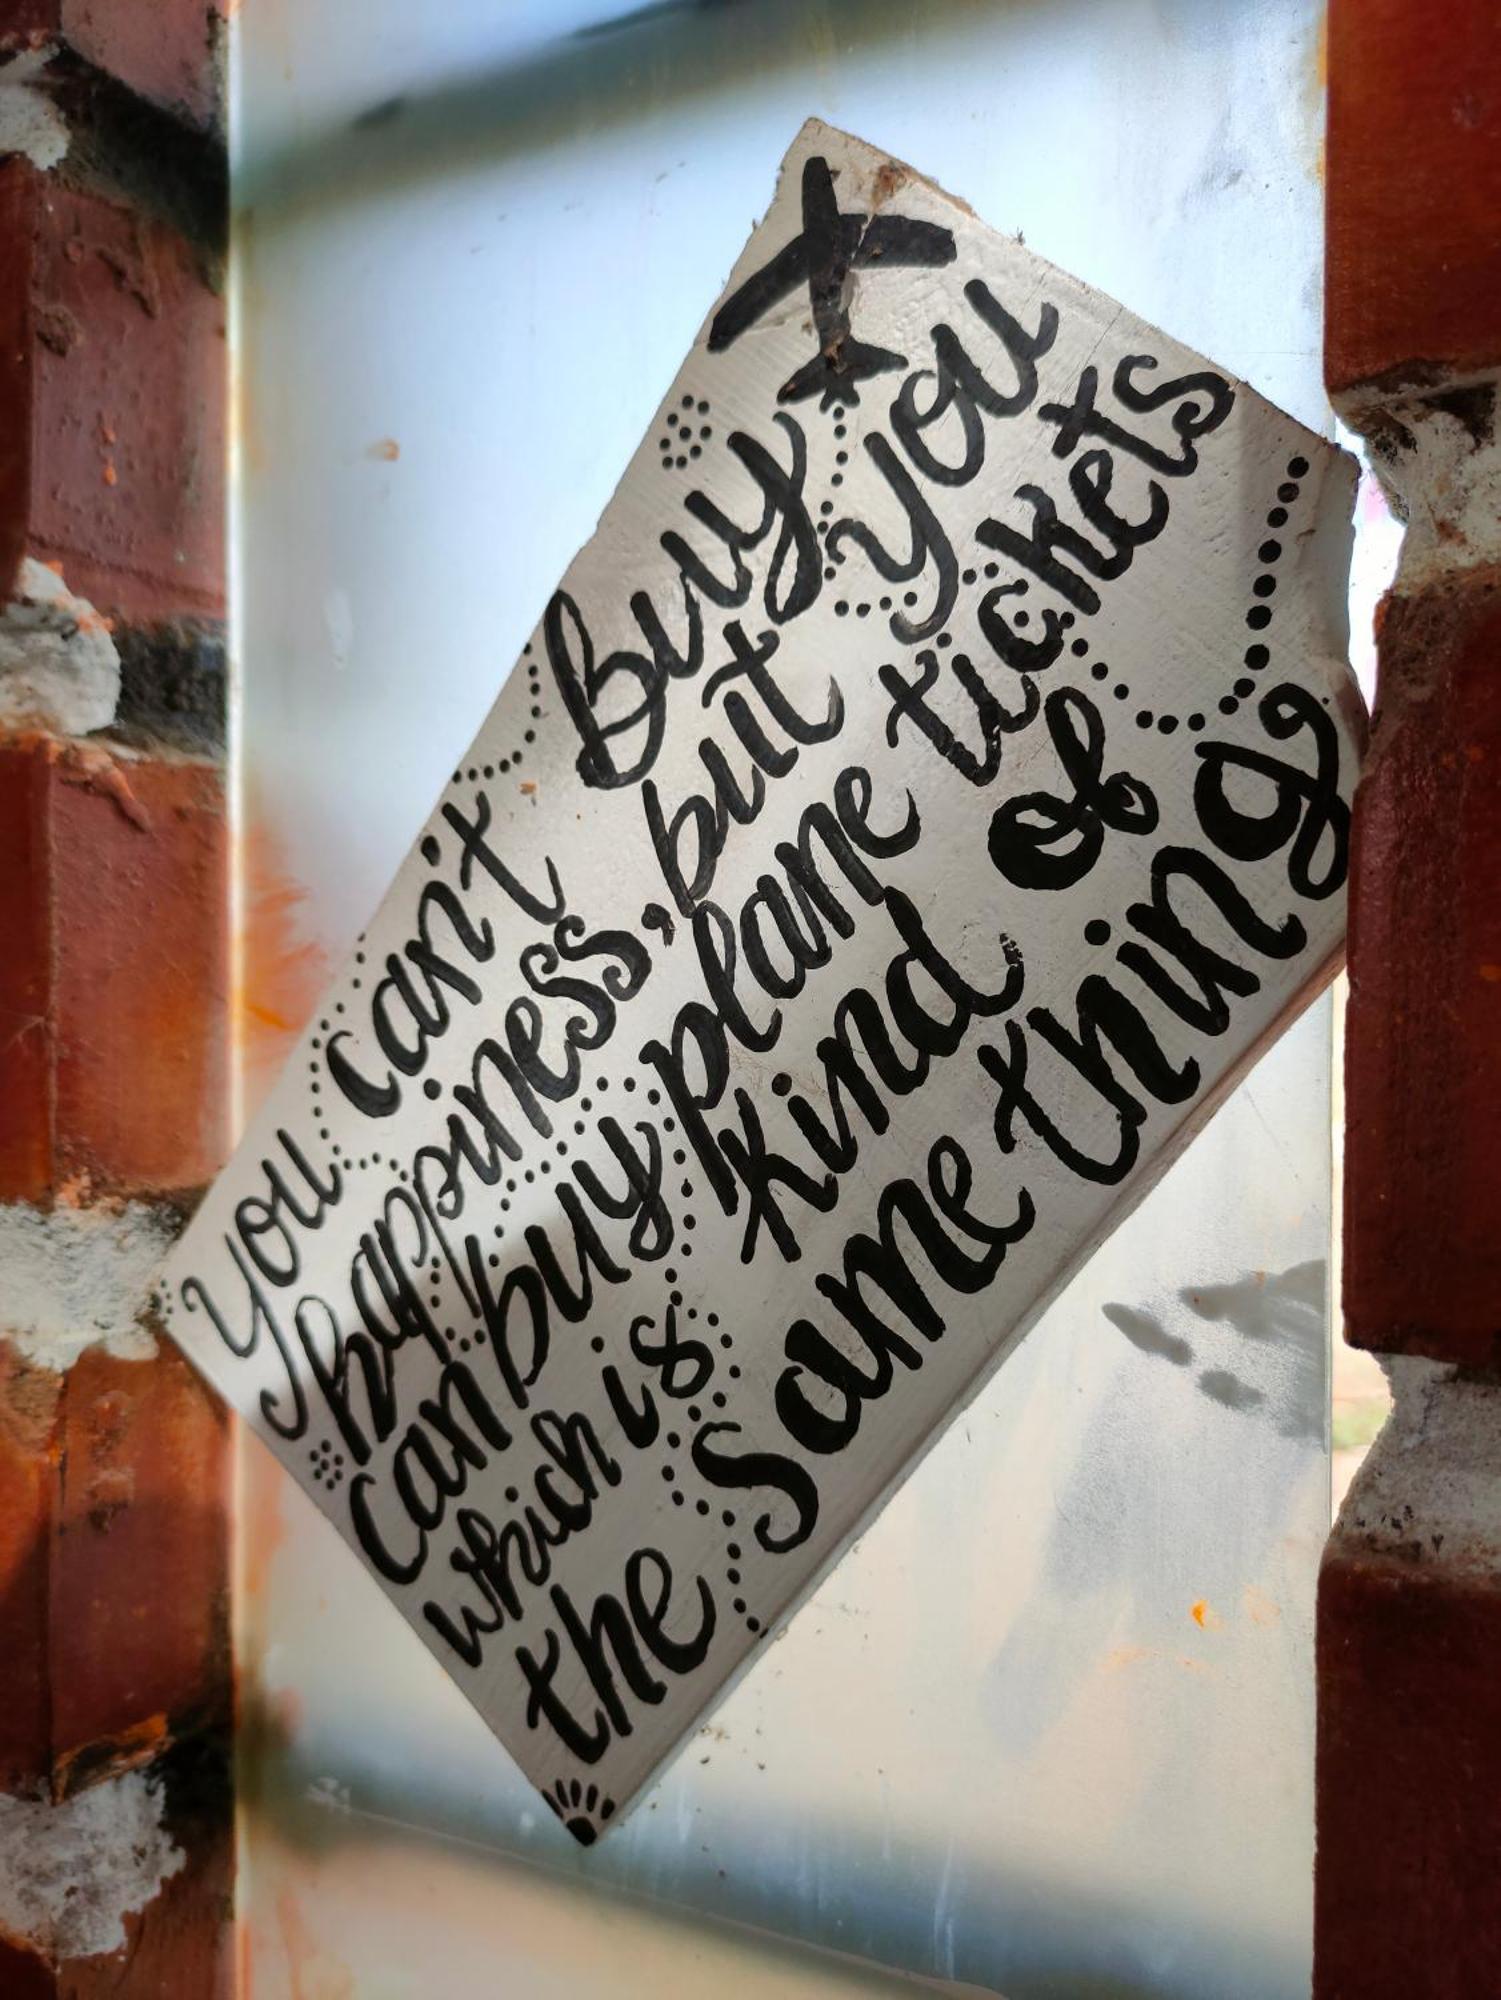 you can't Buy
happiness, but you
can buy plane tickets
which is kind of
the same thing